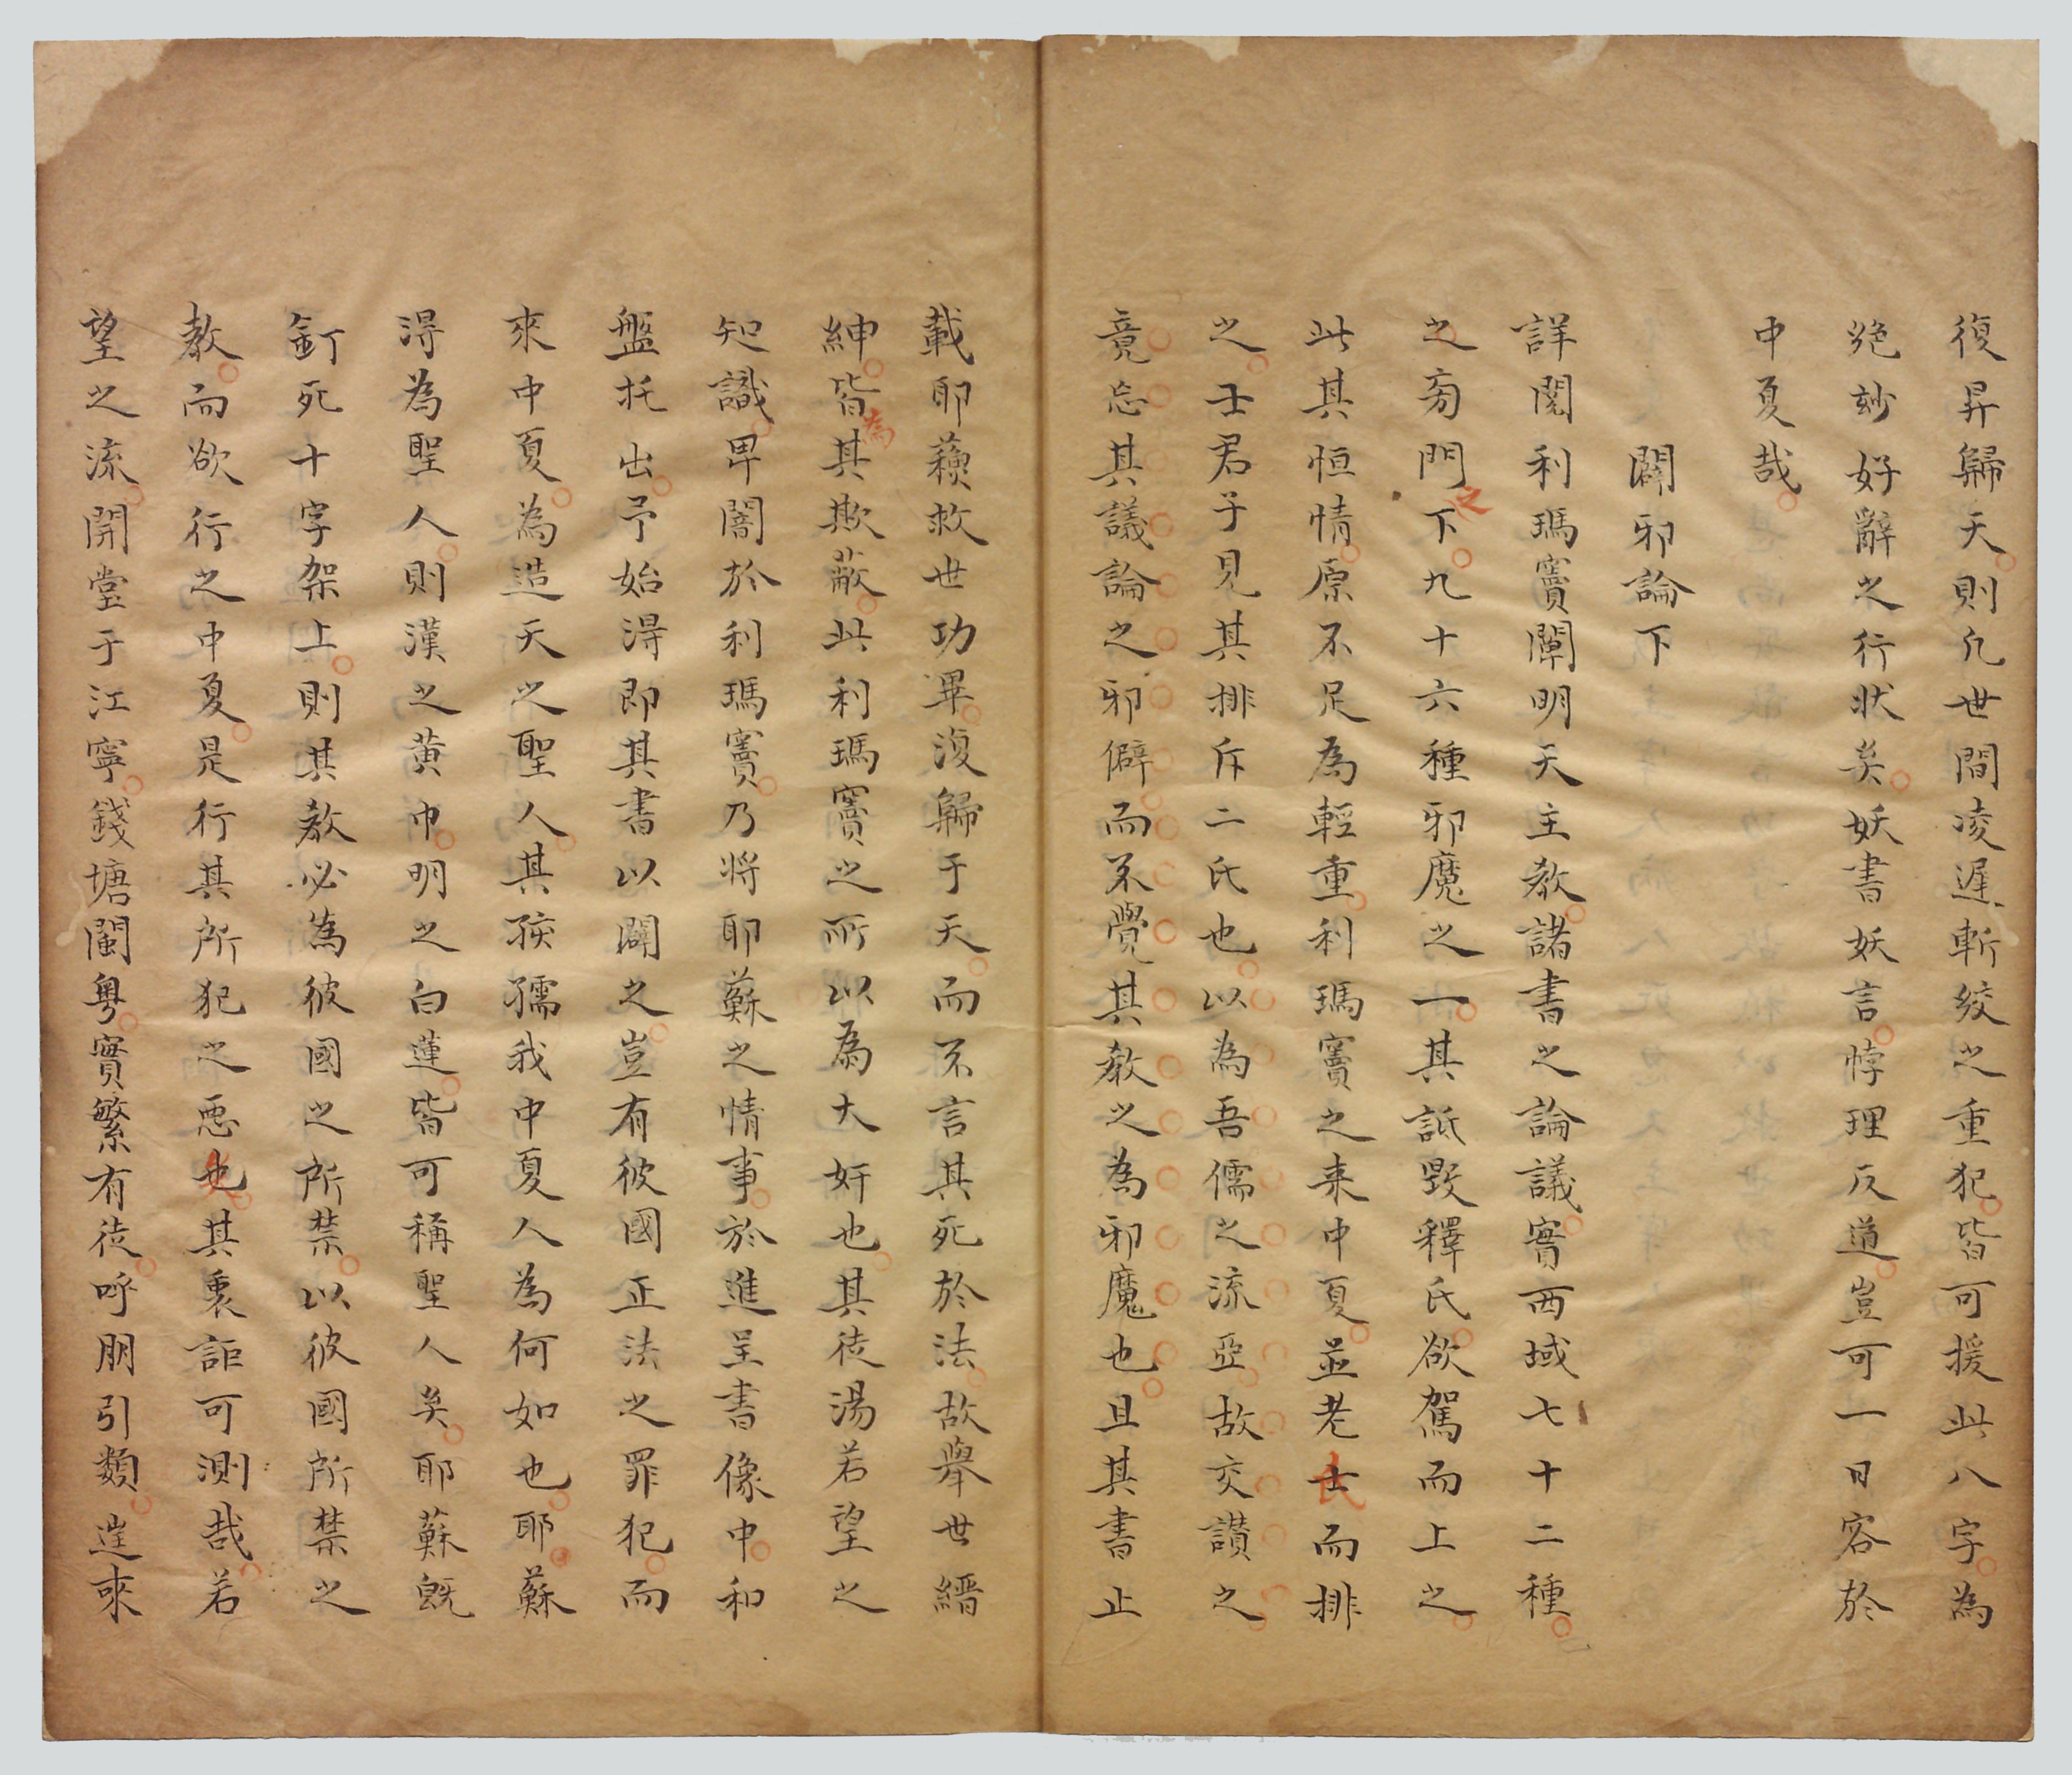 復昇歸天則凡世間凌遲斬絞之重犯皆可援此八字為
絶妙好辭之行狀矣妖書妖言悖理反道豈可一日容於
中夏哉
闢邪論下
詳閱利瑪竇闡明天主教諸書之論議實西域七十二種
之旁門之下九十六種邪魔之一其詆毀釋氏欲駕而上之
此其恒情原不足為輕重利瑪竇之来中夏並老氏而排
之士君子見其排斥二氏也以為吾儒之流亞故交讚之
竟忘其議論之邪僻而不覺其教之為邪魔也且其書止
載耶蘓救世功畢復歸于天而不言其死於法故舉世縉
紳皆為其欺蔽此利瑪竇之所以為大奸也其徒湯若望之
知識卑闇於利瑪竇乃將耶蘇之情事於進呈書像中和
盤托出予始得即其書以闢之豈有彼國正法之罪犯而
來中夏為造天之聖人其孩孺我中夏人為何如也耶蘇
得為聖人則漢之黄巾明之白蓮皆可稱聖人矣耶蘇既
釘死十字架上則其教必為彼國之所禁以彼國所禁之
教而欲行之中夏是行其所犯之惡矣其衷詎可測哉若
望之流開堂于江寧錢塘閩粤實繁有徒呼朋引類逩來